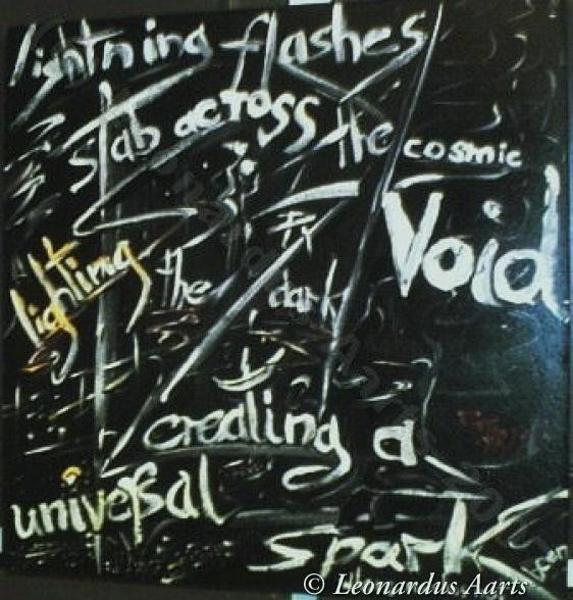 lightning flashes
stab across the cosmic
Void
lighting the dark
creating a
universal
spark
© Leonardus Aarts